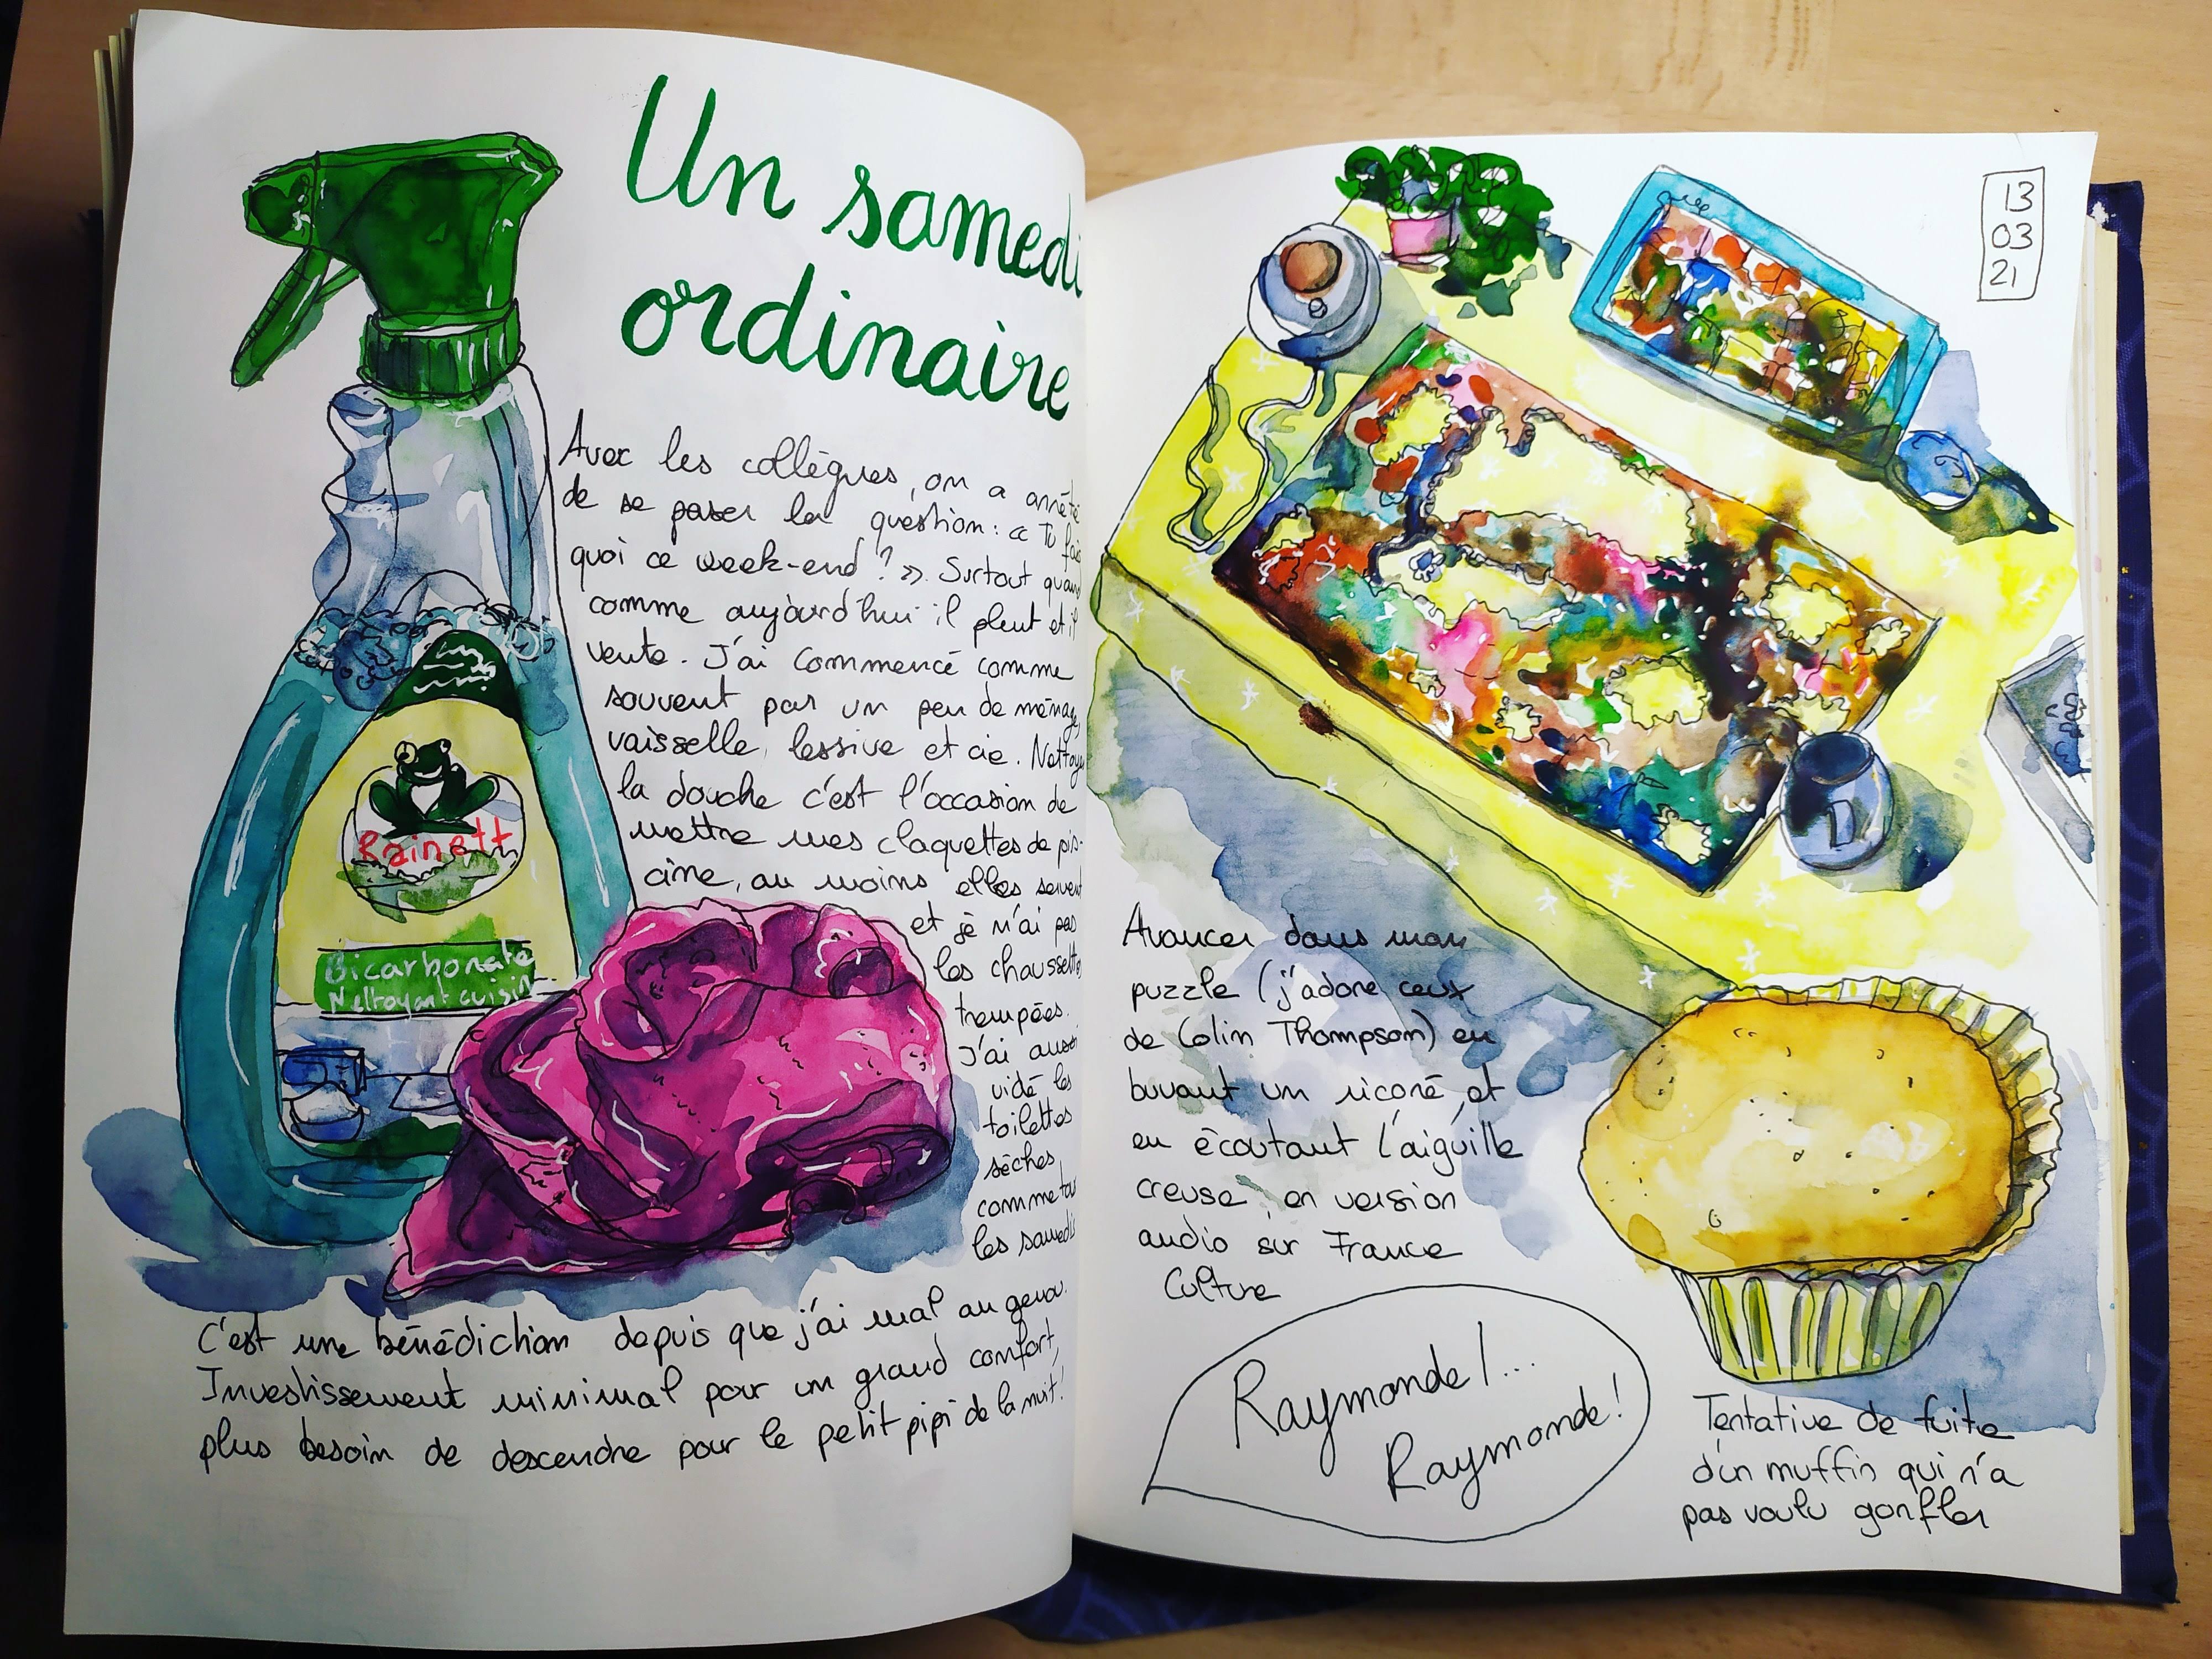 Un samedi
ordinaire
Avec les collègues, on a arrêté
de se poser la question : « Tu fais
quoi ce week-end ? ». Surtout quand
comme aujourd'hui il pleut et il
vente. J'ai commencé comme
souvent par un peu de ménage,
vaisselle, lessive et cie. Nettoyer
la douche c'est l'occasion de
mettre mes claquettes de pis-
cine, au moins elles servent
et je n'ai pas
les chaussettes
trempées.
J'ai aussi
vidé les
toilettes
sèches
comme tous
les samedis
C'est une bénédiction depuis que j'ai mal au genou.
Investissement minimal pour un grand confort,
plus besoin de descendre pour le petit pipi de la nuit!
Rainett
Bicarbonate
Nettoyant cuisine
13
03
21
Avancer dans mon
puzzle (j'adore ceux
de Colin Thompson) en
buvant un ricoré et
en écoutant l'aiguille
creuse en version
audio sur France
Culture
Raymonde!...
Raymonde!
Tentative de fuite
d'un muffin qui n'a
pas voulu gonfler